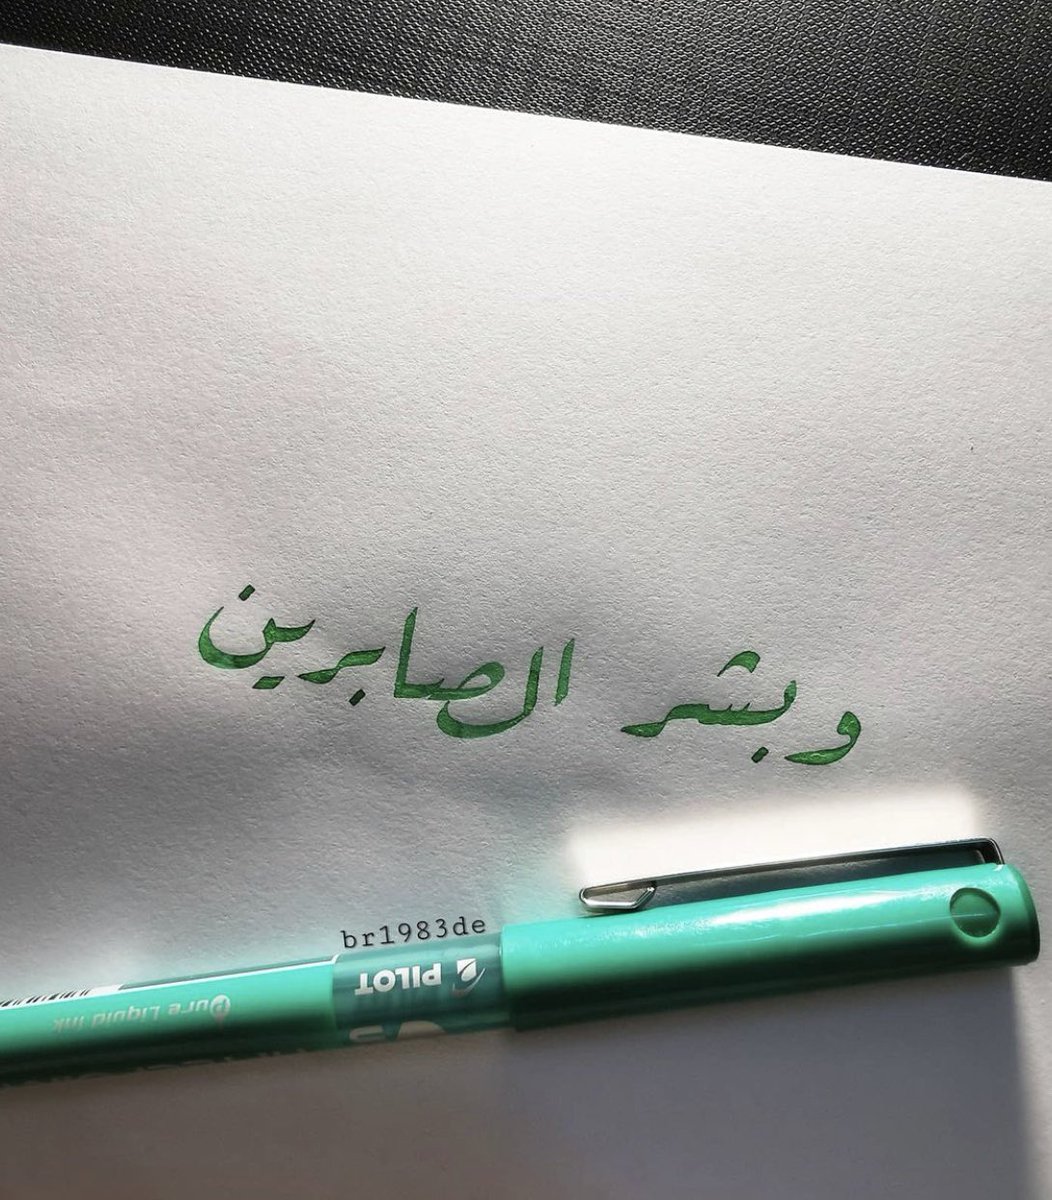 وبشر الصابرين
br1983de
PILOT
Pure Liquid Ink